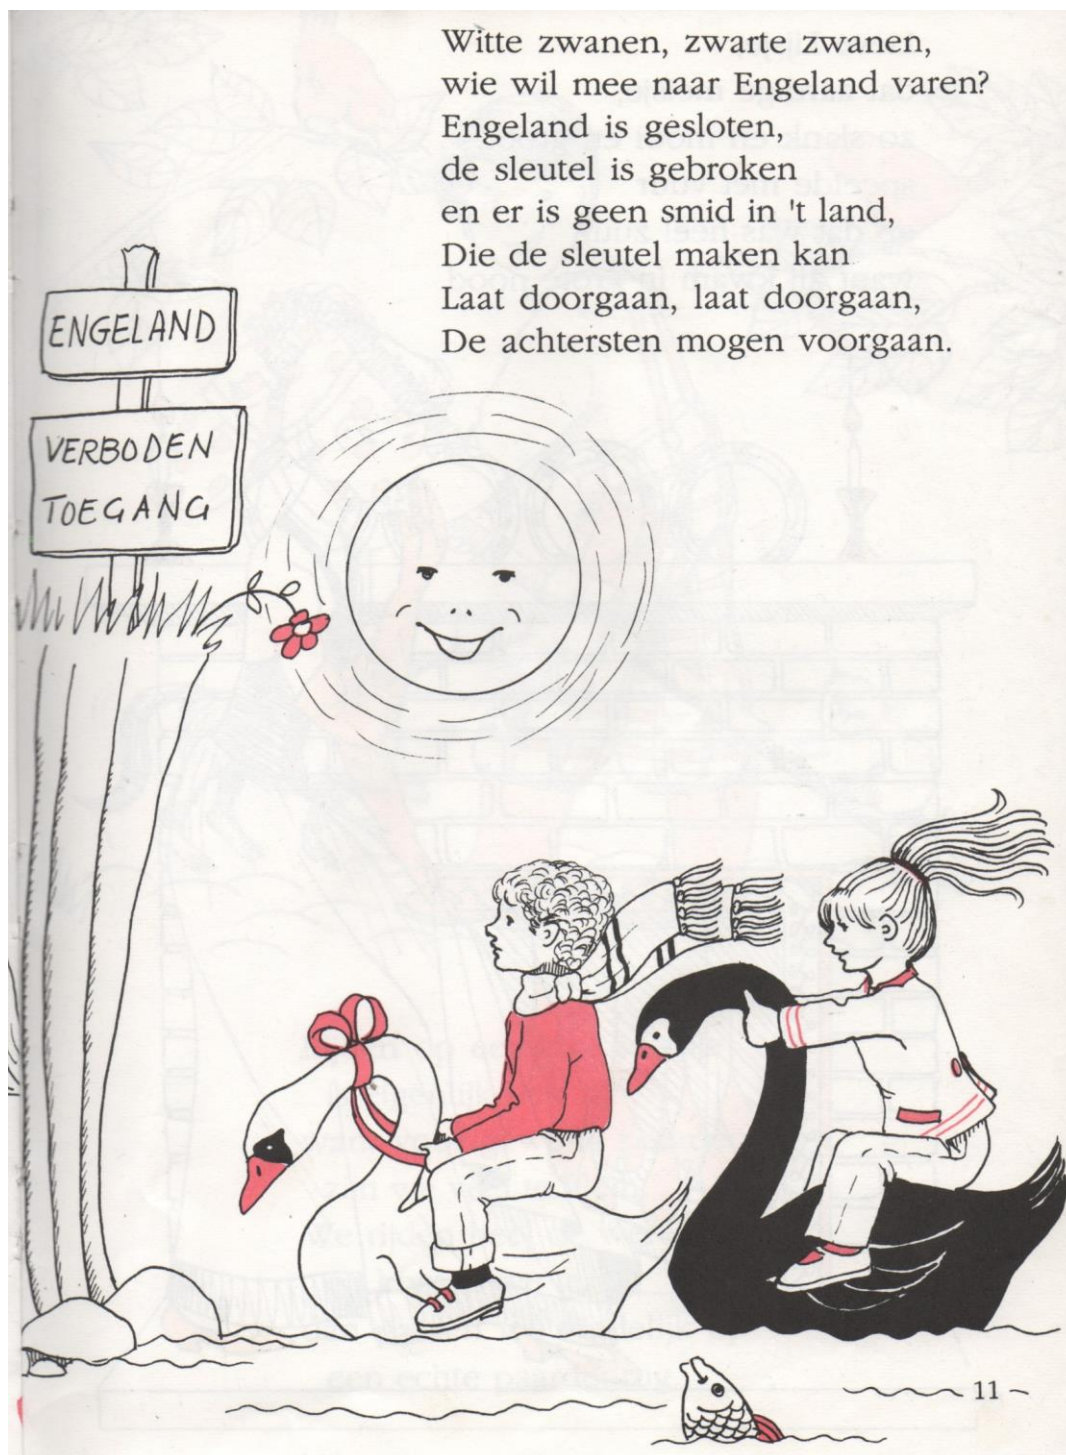 Witte zwanen, zwarte zwanen,
wie wil mee naar Engeland varen?
Engeland is gesloten,
de sleutel is gebroken
en er is geen smid in 't land,
Die de sleutel maken kan
Laat doorgaan, laat doorgaan,
De achtersten mogen voorgaan.
ENGELAND
VERBODEN
TOEGANG
11